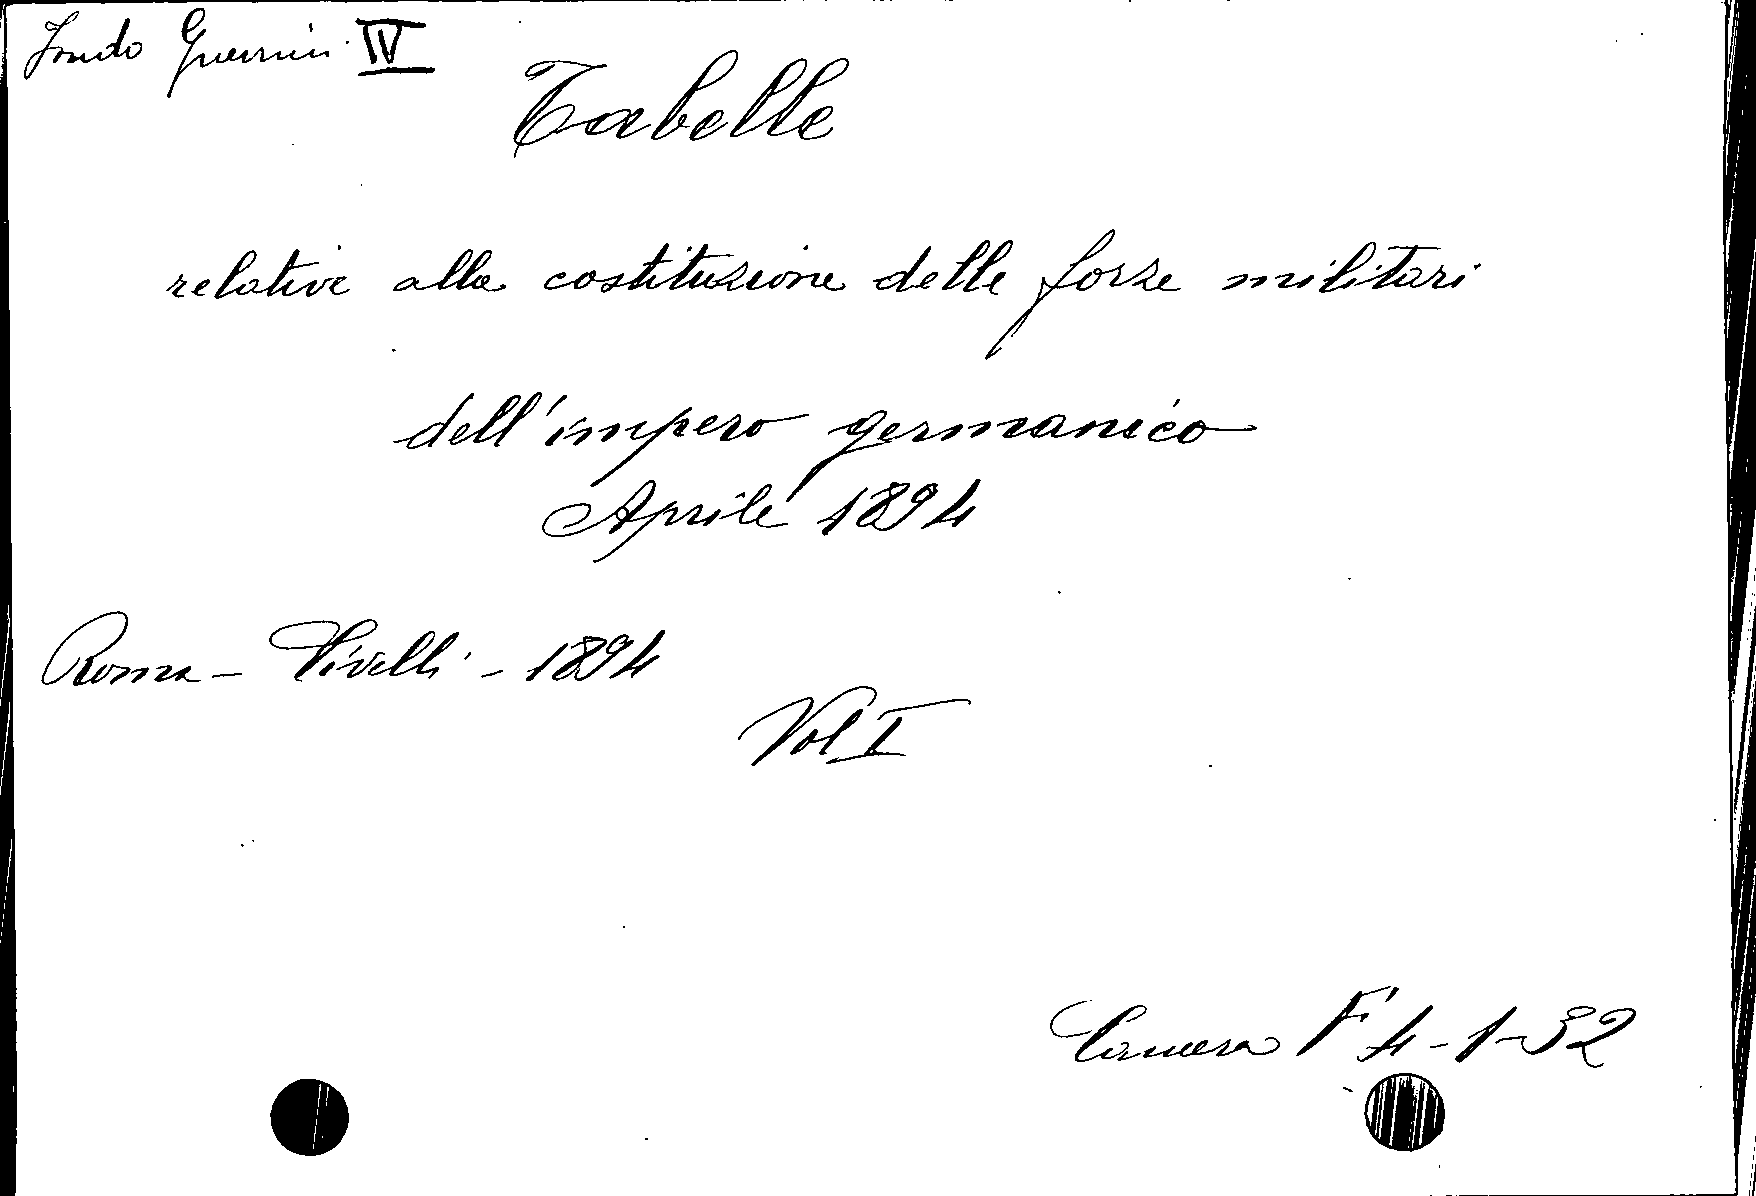 Fondo Guerrini IV
Tabelle
relative alla costituzione delle forze militari
dell'impero germanico
Aprile 1894
Roma - Tivelli - 1894
Vol I
Camera F 4-1-32